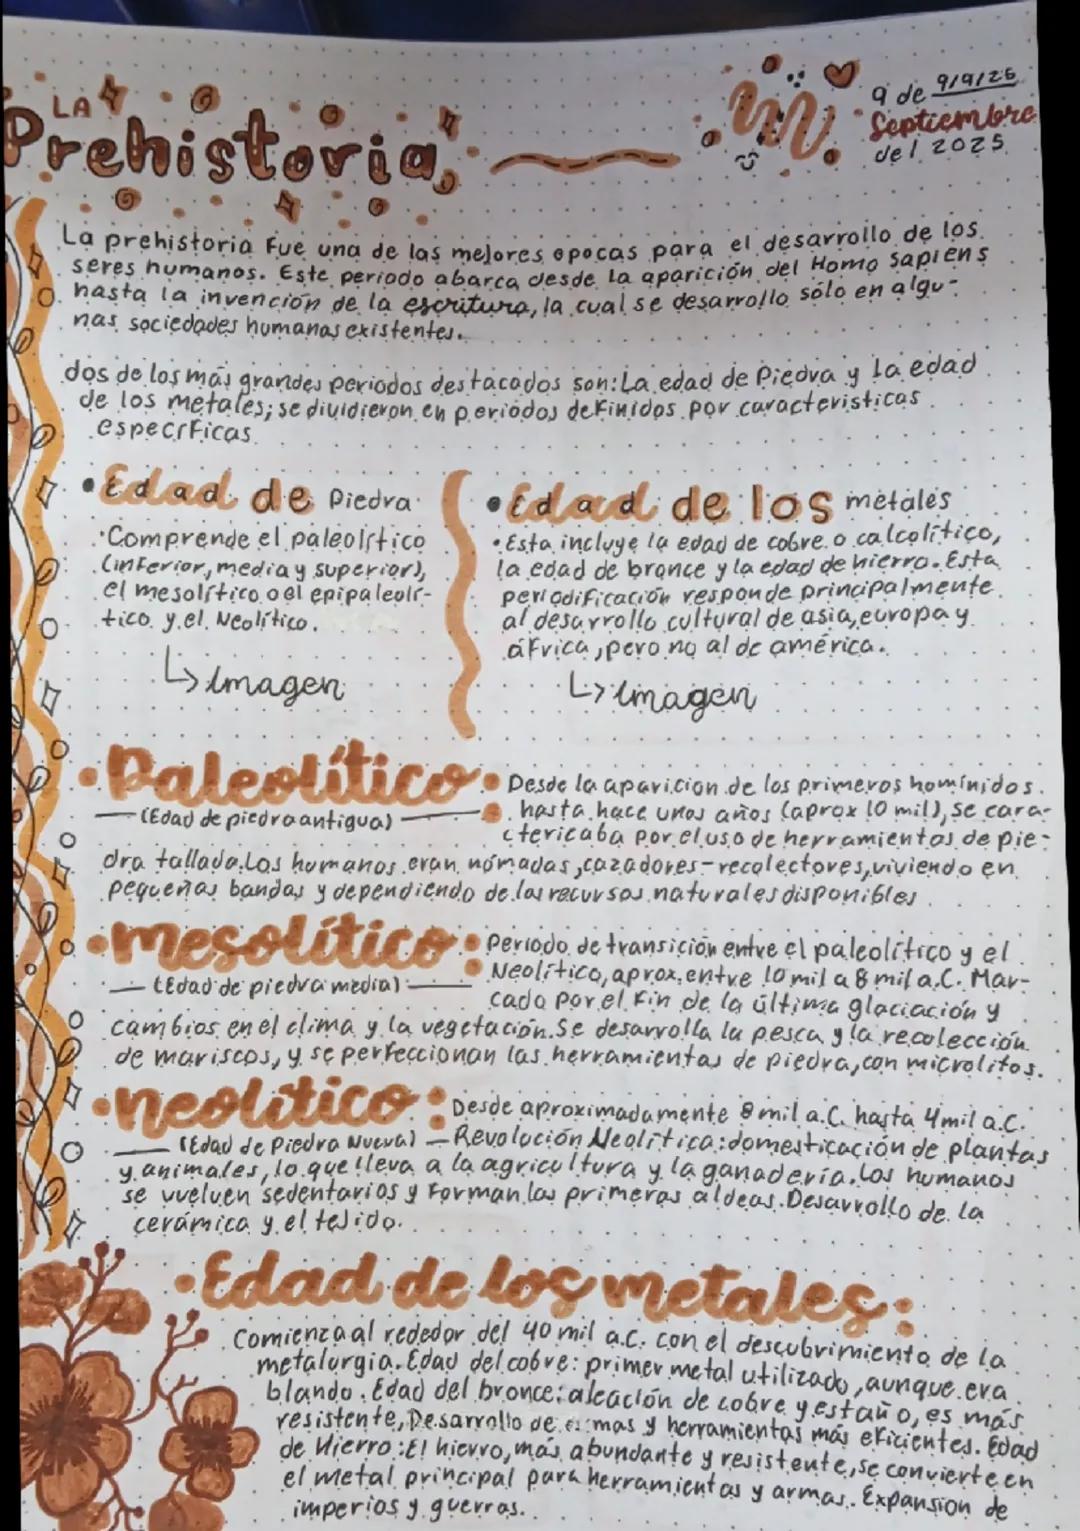 LA
Prehistoria
m
9/9/25
9 de Septiembre
del 2025
La prehistoria fue una de las mejores opocas para el desarrollo de los
seres humanos. Este periodo abarca desde la aparición del Homo sapiens
hasta la invención de la escritura, la cual se desarrollo sólo en algu-
nas sociedades humanas existentes.
dos de los más grandes periodos destacados son: La edad de Piedra y la edad
de los metales; se dividieron en periodos definidos por caracteristicas
especificas
• Edad de Piedra
• Comprende el paleolítico
(inferior, media y superior),
el mesolítico o el epipaleolí-
tico y el Neolítico.
↳ Imagen
• Edad de los metales
• Esta incluye la edad de cobre o calcolítico,
la edad de bronce y la edad de hierro. Esta
periodificación responde principalmente
al desarrollo cultural de asia, europa y
áfrica, pero no al de américa.
↳ imagen
• Paleolítico: Desde la aparicion de los primeros homínidos
(Edad de piedra antigua) hasta hace unos años (aprox 10 mil), se cara-
ctericaba por el uso de herramientas de pie-
dra tallada. Los humanos eran nómadas, cazadores-recolectores, viviendo en
pequeñas bandas y dependiendo de las recursos naturales disponibles
• mesolítico: Periodo de transición entre el paleolítico y el
(Edad de piedra media) Neolítico, aprox. entre 10 mil a 8 mil a.C. Mar-
cado por el fin de la última glaciación y
cambios en el clima y la vegetación. Se desarrolla la pesca y la recolección
de mariscos, y se perfeccionan las herramientas de piedra, con microlitos.
• neolítico: Desde aproximadamente 8 mil a.C. hasta 4 mil a.C.
(Edad de Piedra Nueva) — Revolución Neolítica: domesticación de plantas
y animales, lo que lleva a la agricultura y la ganadería. Los humanos
se vuelven sedentarios y forman las primeras aldeas. Desarrollo de la
cerámica y el tejido.
• Edad de los metales:
Comienza al rededor del 40 mil a.C. con el descubrimiento de la
metalurgia. Edad del cobre: primer metal utilizado, aunque era
blando. Edad del bronce: aleación de cobre y estaño, es más
resistente, Desarrollo de armas y herramientas más eficientes. Edad
de Hierro: El hierro, más abundante y resistente, se convierte en
el metal principal para herramientas y armas. Expansion de
imperios y guerras.